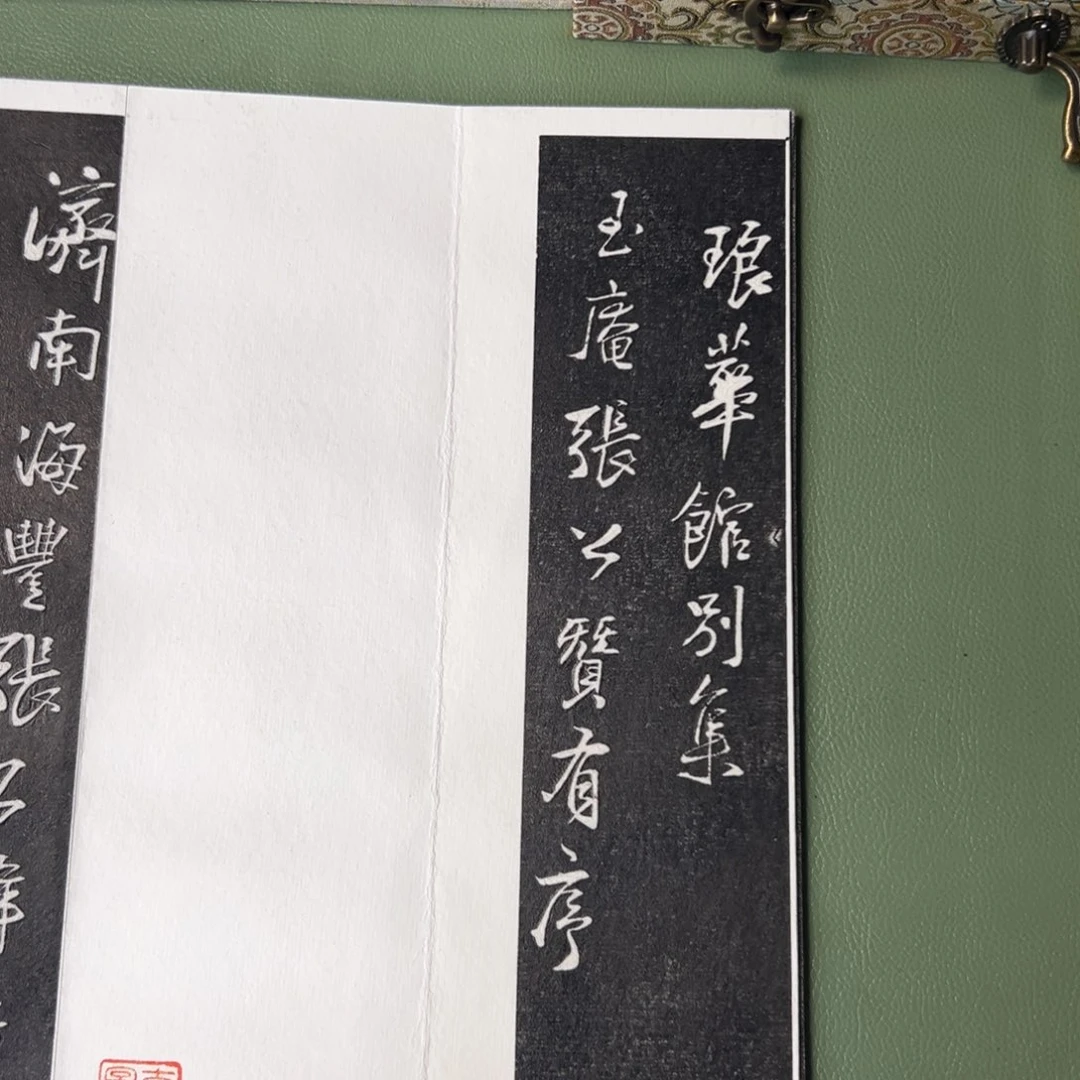 琅華館別集
玉庵張公贊有序
濟南海豐張公